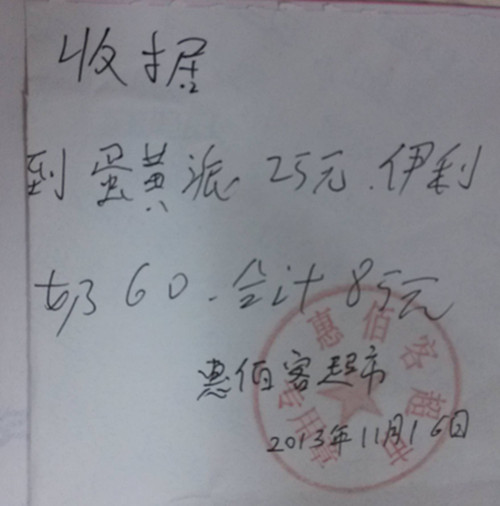 收据
到蛋黄派25元.伊利
奶60.合计85元
惠佰客超市
2013年11月16日
惠佰客超市
专用章